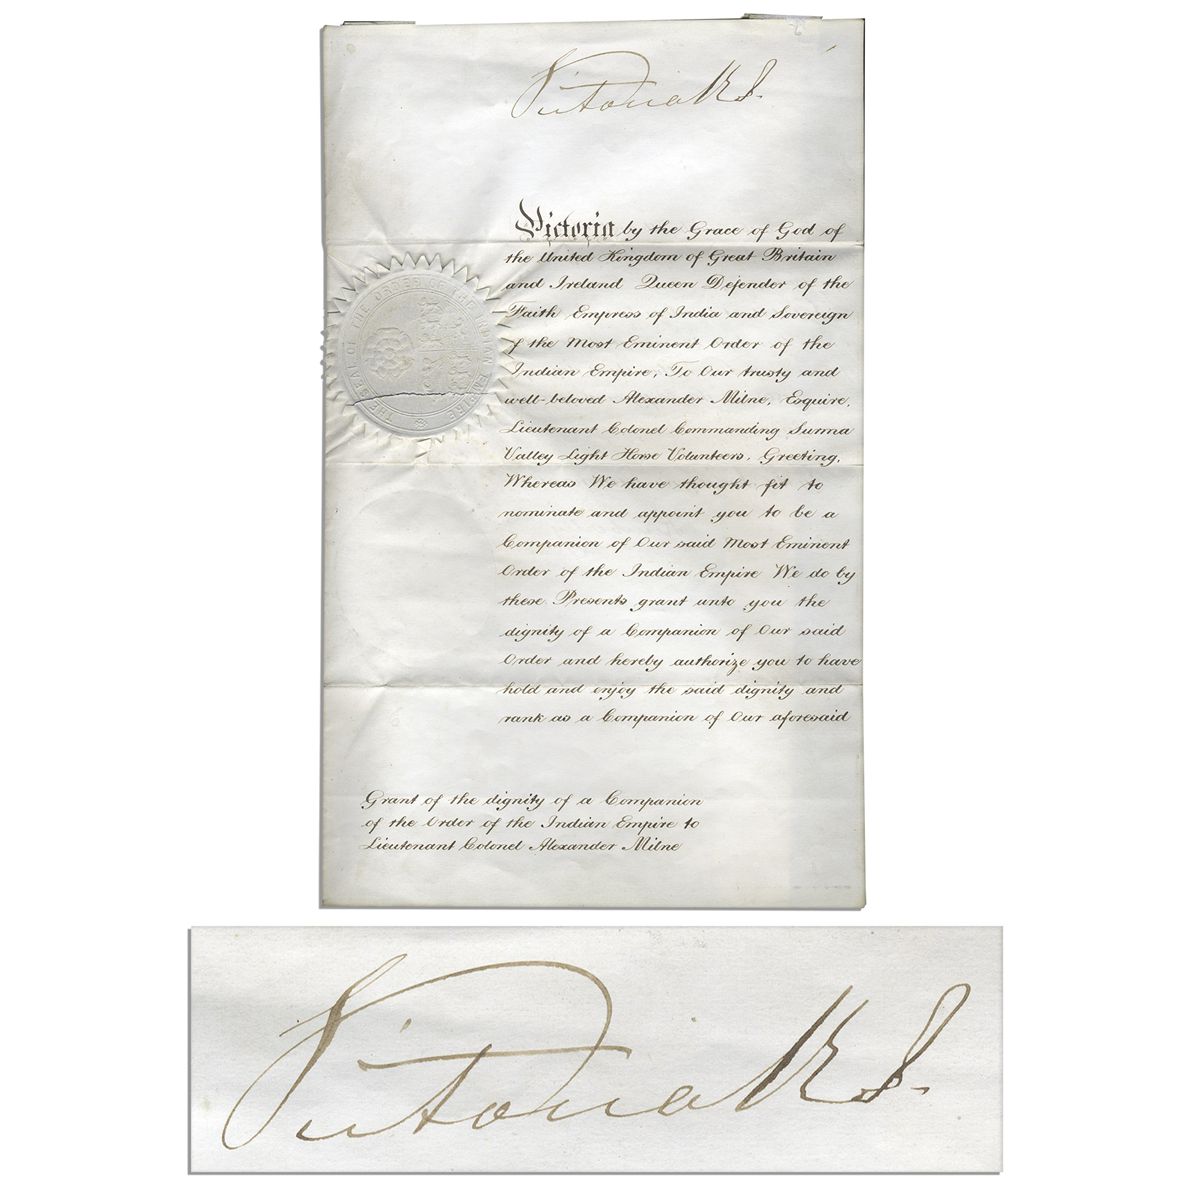 Victoria R I
Victoria by the Grace of God of
the United Kingdom of Great Britain
and Ireland Queen Defender of the
Faith Empress of India and Sovereign
of the Most Eminent Order of the
Indian Empire, To Our trusty and
well-beloved Alexander Milne, Esquire,
Lieutenant Colonel Commanding Surma
Valley Light Horse Volunteers, Greeting,
Whereas We have thought fit to
nominate and appoint you to be a
Companion of Our said Most Eminent
Order of the Indian Empire We do by
these Presents grant unto you the
dignity of a Companion of Our said
Order and hereby authorize you to have
hold and enjoy the said dignity and
rank as a Companion of Our aforesaid
THE SEAL OF THE ORDER OF THE INDIAN EMPIRE
Grant of the dignity of a Companion
of the Order of the Indian Empire to
Lieutenant Colonel Alexander Milne
Victoria R I